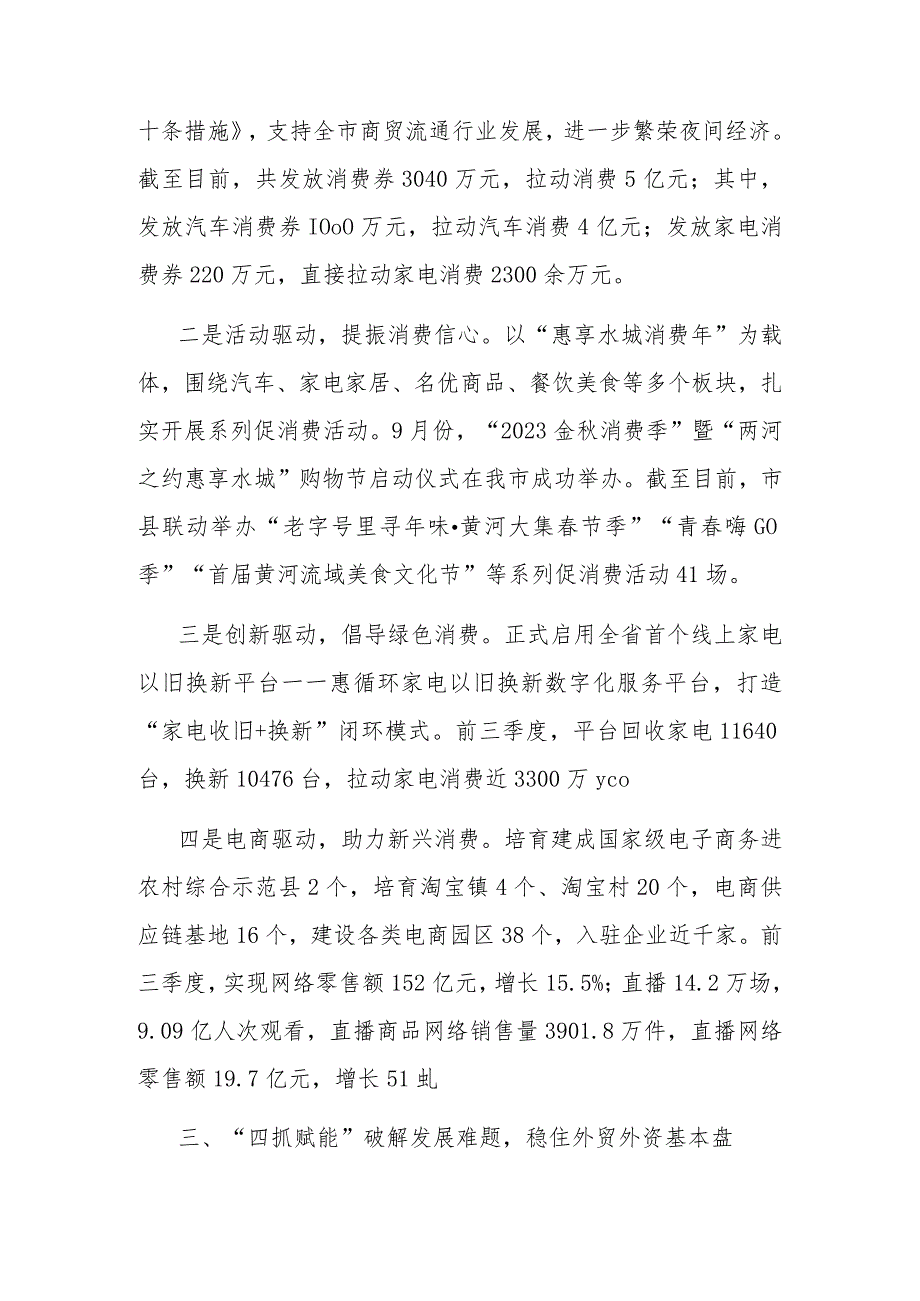 十条措施》，支持全市商贸流通行业发展，进一步繁荣夜间经济。
截至目前，共发放消费券 3040 万元，拉动消费 5 亿元；其中，
发放汽车消费券 IOoO 万元，拉动汽车消费 4 亿元；发放家电消
费券 220 万元，直接拉动家电消费 2300 余万元。
二是活动驱动，提振消费信心。以“惠享水城消费年”为载
体，围绕汽车、家电家居、名优商品、餐饮美食等多个板块，扎
实开展系列促消费活动。9 月份，“2023 金秋消费季”暨“两河
之约惠享水城”购物节启动仪式在我市成功举办。截至目前，市
县联动举办“老字号里寻年味•黄河大集春节季”“青春嗨 GO
季”“首届黄河流域美食文化节”等系列促消费活动 41 场。
三是创新驱动，倡导绿色消费。正式启用全省首个线上家电
以旧换新平台一一惠循环家电以旧换新数字化服务平台，打造
“家电收旧+换新”闭环模式。前三季度，平台回收家电 11640
台，换新 10476 台，拉动家电消费近 3300 万 yco
四是电商驱动，助力新兴消费。培育建成国家级电子商务进
农村综合示范县 2 个，培育淘宝镇 4 个、淘宝村 20 个，电商供
应链基地 16 个，建设各类电商园区 38 个，入驻企业近千家。前
三季度，实现网络零售额 152 亿元，增长 15.5%；直播 14.2 万场，
9.09 亿人次观看，直播商品网络销售量 3901.8 万件，直播网络
零售额 19.7 亿元，增长 51 虬
三、“四抓赋能”破解发展难题，稳住外贸外资基本盘